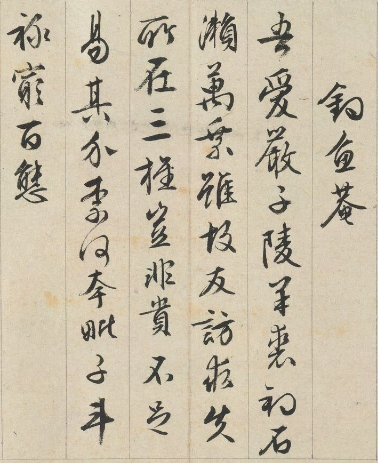 釣魚菴
吾愛嚴子陵羊裘釣石
瀨萬乘雖故友訪求失
所在三旌豈非貴不足
易其介柰何夸毗子斗
祿窮百態